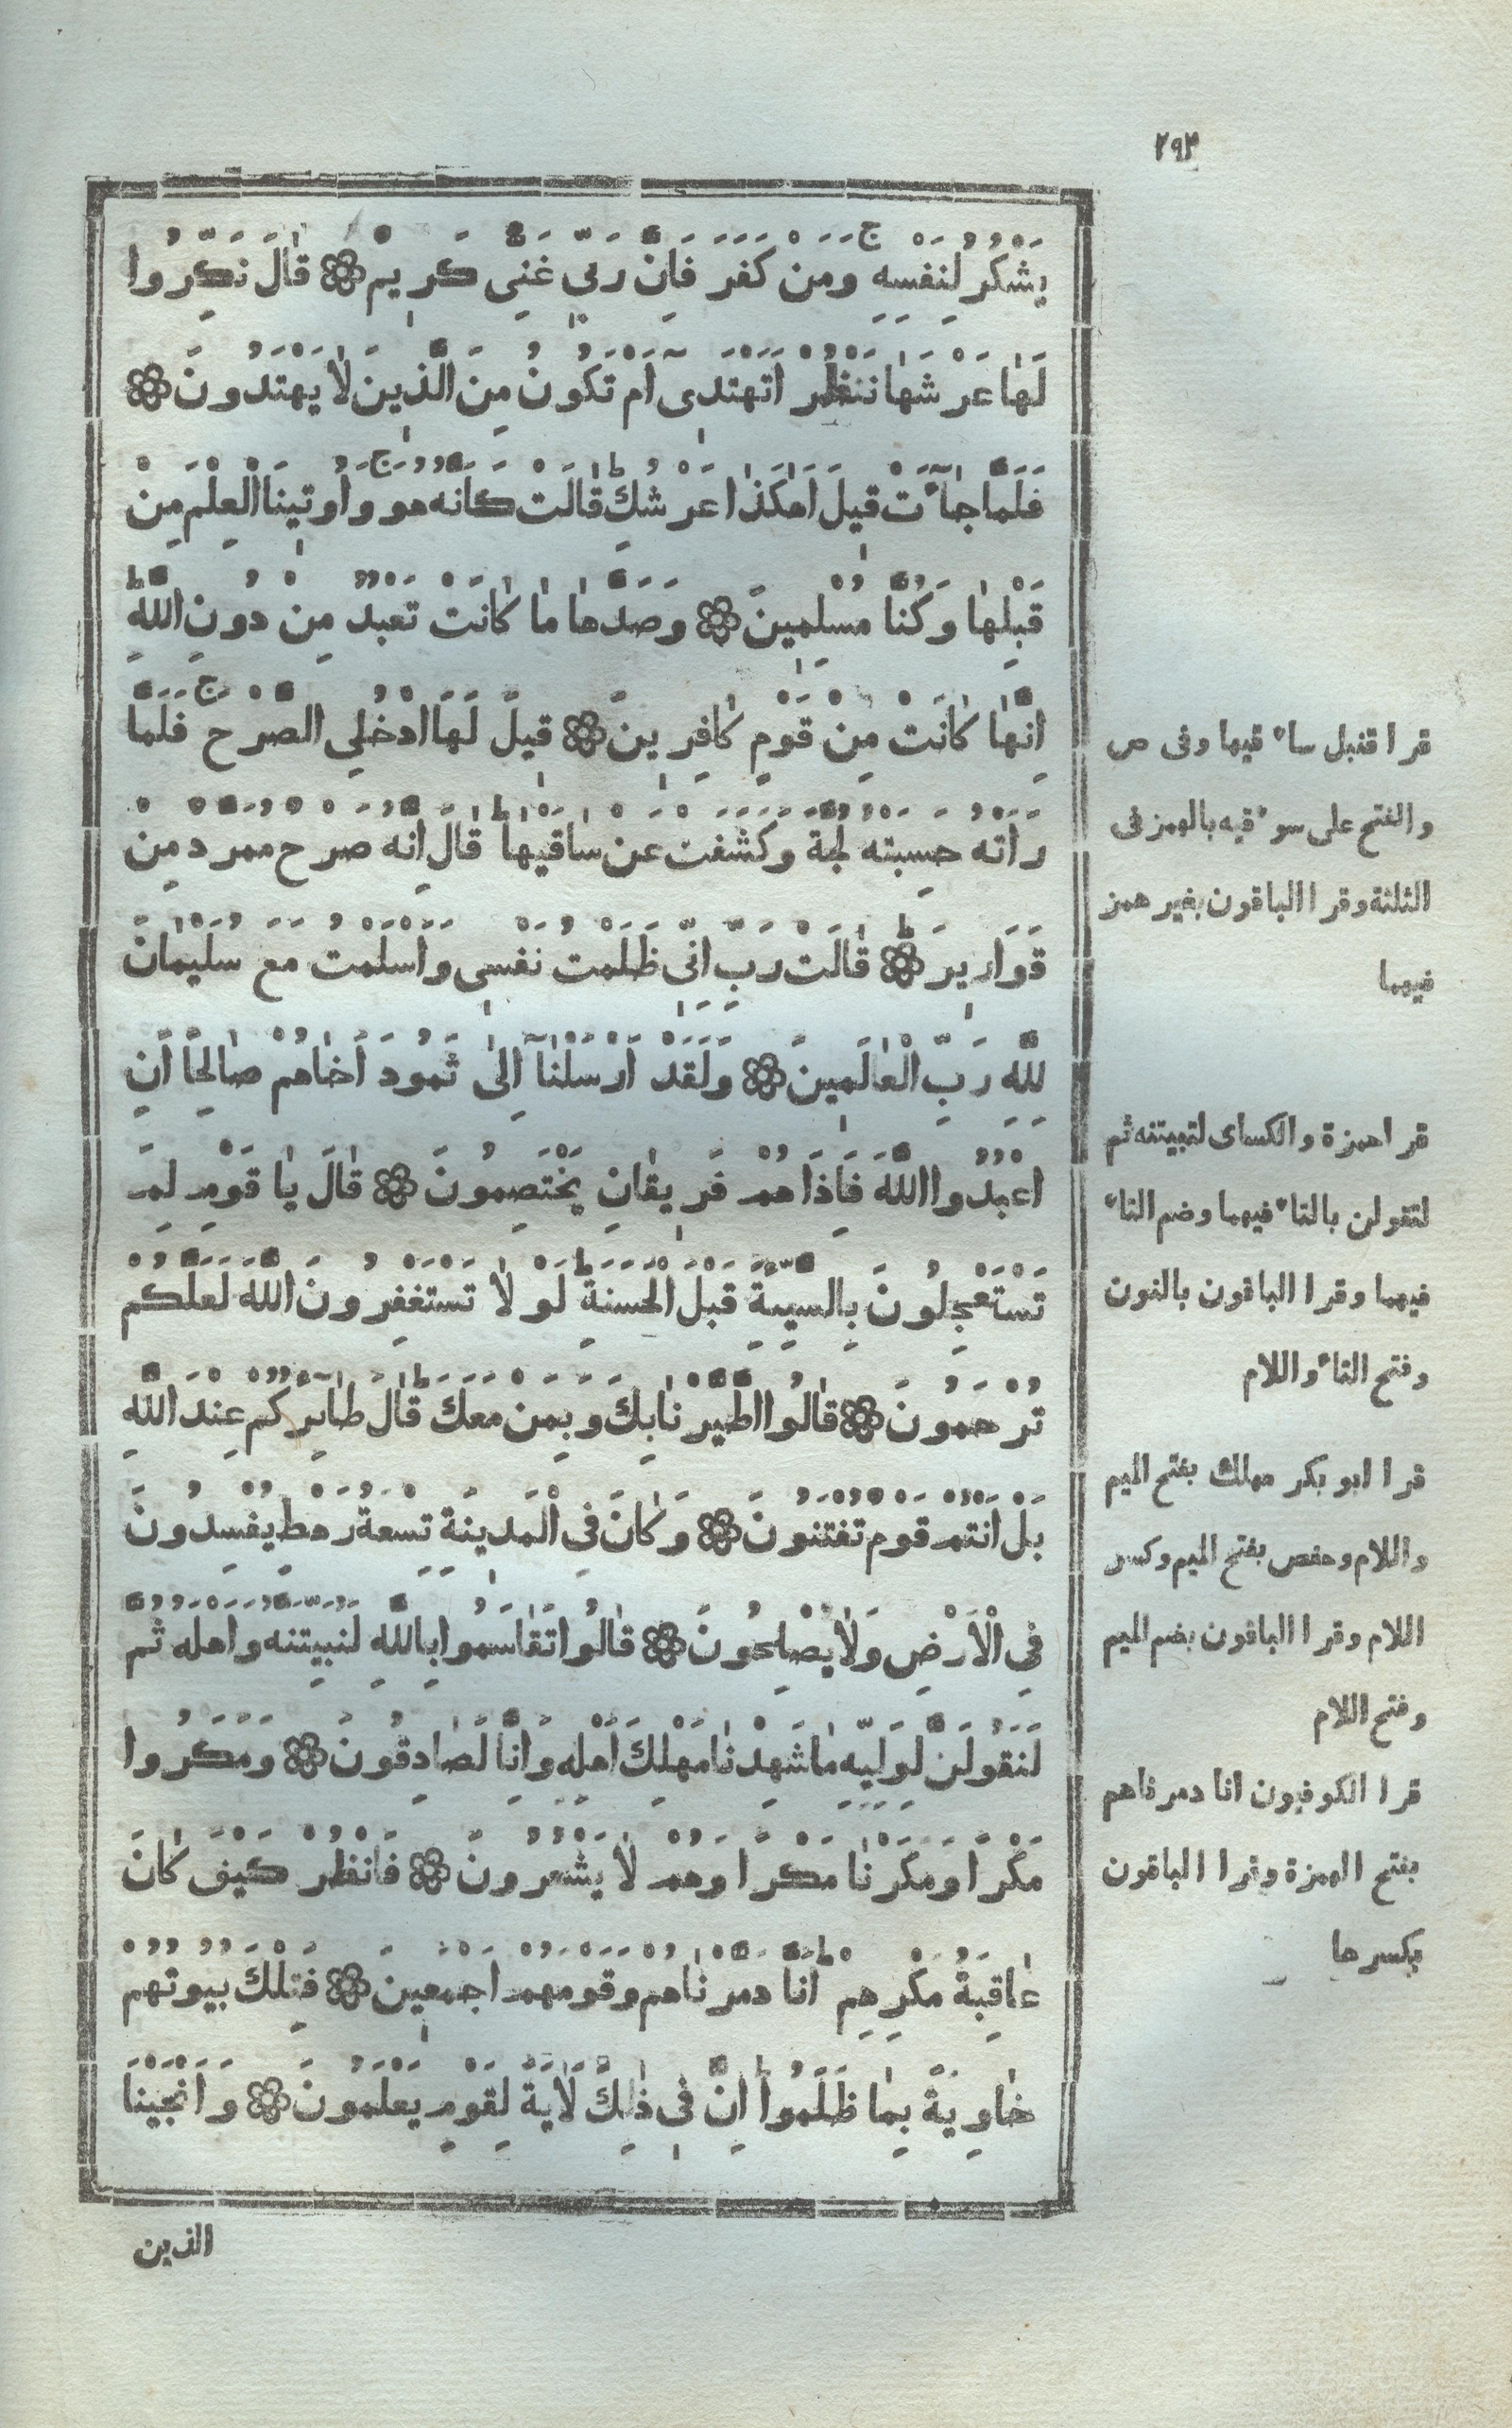 ٢٩٣
يَشْكُرُ لِنَفْسِهِ ۚ وَمَنْ كَفَرَ فَاِنَّ رَبّٖي غَنِىٌّ كَرٖيمٌ ۞ قٰالَ نَكِّرُوا
لَهٰا عَرْشَهٰا نَنْظُرْ اَتَهْتَدٖىٓ اَمْ تَكُونُ مِنَ الَّذٖينَ لٰا يَهْتَدُونَ ۞
فَلَمَّا جٰاۤءَتْ قٖيلَ اَهٰكَذٰا عَرْشُكِ ؕ قٰالَتْ كَاَنَّهُ هُوَ ۚ وَاُوتٖينَا الْعِلْمَ مِنْ
قَبْلِهٰا وَكُنّٰا مُسْلِمٖينَ ۞ وَصَدَّهٰا مٰا كٰانَتْ تَعْبُدُ مِنْ دُونِ اللّٰهِ ؕ
اِنَّهٰا كٰانَتْ مِنْ قَوْمٍ كٰافِرٖينَ ۞ قٖيلَ لَهَا ادْخُلِى الصَّرْحَ ۚ فَلَمَّا
رَاَتْهُ حَسِبَتْهُ لُجَّةً وَكَشَفَتْ عَنْ سٰاقَيْهٰا ؕ قٰالَ اِنَّهُ صَرْحٌ مُمَرَّدٌ مِنْ
قَوَارٖيرَ ؕ ۞ قٰالَتْ رَبِّ اِنّٖى ظَلَمْتُ نَفْسٖى وَاَسْلَمْتُ مَعَ سُلَيْمٰانَ
لِلّٰهِ رَبِّ الْعٰالَمٖينَ ۞ وَلَقَدْ اَرْسَلْنٰاۤ اِلٰى ثَمُودَ اَخٰاهُمْ صٰالِحًا اَنِ
اعْبُدُوا اللّٰهَ فَاِذَا هُمْ فَرٖيقٰانِ يَخْتَصِمُونَ ۞ قٰالَ يٰا قَوْمِ لِمَ
تَسْتَعْجِلُونَ بِالسَّيِّئَةِ قَبْلَ الْحَسَنَةِ ؕ لَوْ لٰا تَسْتَغْفِرُونَ اللّٰهَ لَعَلَّكُمْ
تُرْحَمُونَ ۞ قٰالُوا اطَّيَّرْنٰا بِكَ وَبِمَنْ مَعَكَ ؕ قٰالَ طٰاۤئِرُكُمْ عِنْدَ اللّٰهِ
بَلْ اَنْتُمْ قَوْمٌ تُفْتَنُونَ ۞ وَكٰانَ فِى الْمَدٖينَةِ تِسْعَةُ رَهْطٍ يُفْسِدُونَ
فِى الْاَرْضِ وَلٰا يُصْلِحُونَ ۞ قٰالُوا تَقٰاسَمُوا بِاللّٰهِ لَنُبَيِّتَنَّهُ وَاَهْلَهُ ثُمَّ
لَنَقُولَنَّ لِوَلِيِّهِ مٰا شَهِدْنٰا مَهْلِكَ اَهْلِهِ وَاِنَّا لَصٰادِقُونَ ۞ وَمَكَرُوا
مَكْرًا وَمَكَرْنٰا مَكْرًا وَهُمْ لٰا يَشْعُرُونَ ۞ فَانْظُرْ كَيْفَ كٰانَ
عٰاقِبَةُ مَكْرِهِمْ ؕ اَنَّا دَمَّرْنٰاهُمْ وَقَوْمَهُمْ اَجْمَعٖينَ ۞ فَتِلْكَ بُيُوتُهُمْ
خٰاوِيَةً بِمٰا ظَلَمُوا ؕ اِنَّ فٖى ذٰلِكَ لَاٰيَةً لِقَوْمٍ يَعْلَمُونَ ۞ وَاَنْجَيْنَا
الذين
قرا قنبل سأقيها وفى ص
والفتح على سؤقه بالهمز فى
الثلثة وقرا الباقون بغير همز
فيهما
قرا حمزة والكساى لتبيتنه ثم
لتقولن بالتاء فيهما وضم التاء
فيهما وقرا الباقون بالنون
وفتح التاء واللام
قرا ابو بكر مهلك بفتح الميم
واللام وحفص بفتح الميم وكسر
اللام وقرا الباقون بضم الميم
وفتح اللام
قرا الكوفيون انا دمرناهم
بفتح الهمزة وقرا الباقون
بكسرها